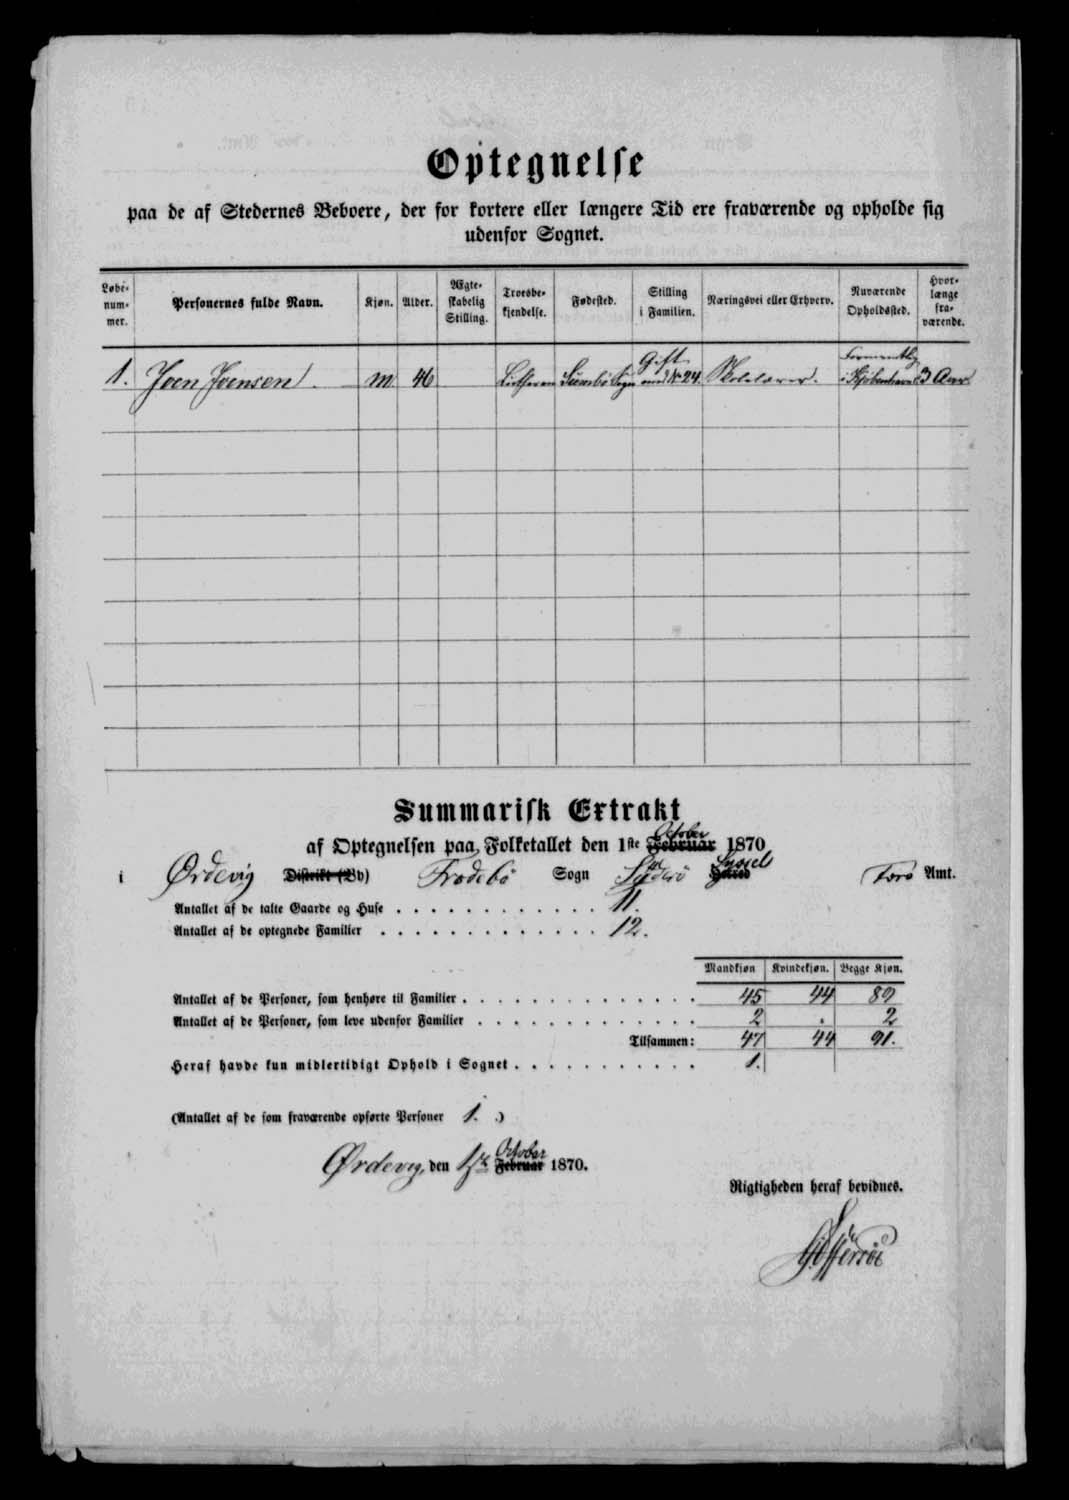 Optegnelse
paa de af Stedernes Beboere, der for kortere eller længere Tid ere fraværende og opholde sig
udenfor Sognet.
Løbe-nummer. Personernes fulde Navn. Kjøn. Alder. Ægteskabelig Stilling. Troesbekjendelse. Fødested. Stilling i Familien. Næringsvei eller Erhverv. Nuværende Opholdssted. Hvorlænge fraværende.
1. Joen Joensen. m 46 Lutheran Sumbø Sogn Gift med No 24. Skolelærer. Formentlig i Kjøbenhavn 3 Aar
Summarisk Extrakt
af Optegnelsen paa Folketallet den 1ste Februar October 1870
i Ørdevig Distrikt (By) Frodebø Sogn Syderø Herred Syssel Færø Amt.
Antallet af de talte Gaarde og Huse 11.
Antallet af de optegnede Familier 12.
Mandkjøn Kvindekjøn. Begge Kjøn.
Antallet af de Personer, som henhøre til Familier 45 44 89
Antallet af de Personer, som leve udenfor Familier 2 . 2
Tilsammen: 47 44 91.
Heraf havde kun midlertidigt Ophold i Sognet 1.
(Antallet af de som fraværende opførte Personer 1.)
Ørdevig, den 1ste Februar October 1870.
Rigtigheden heraf bevidnes.